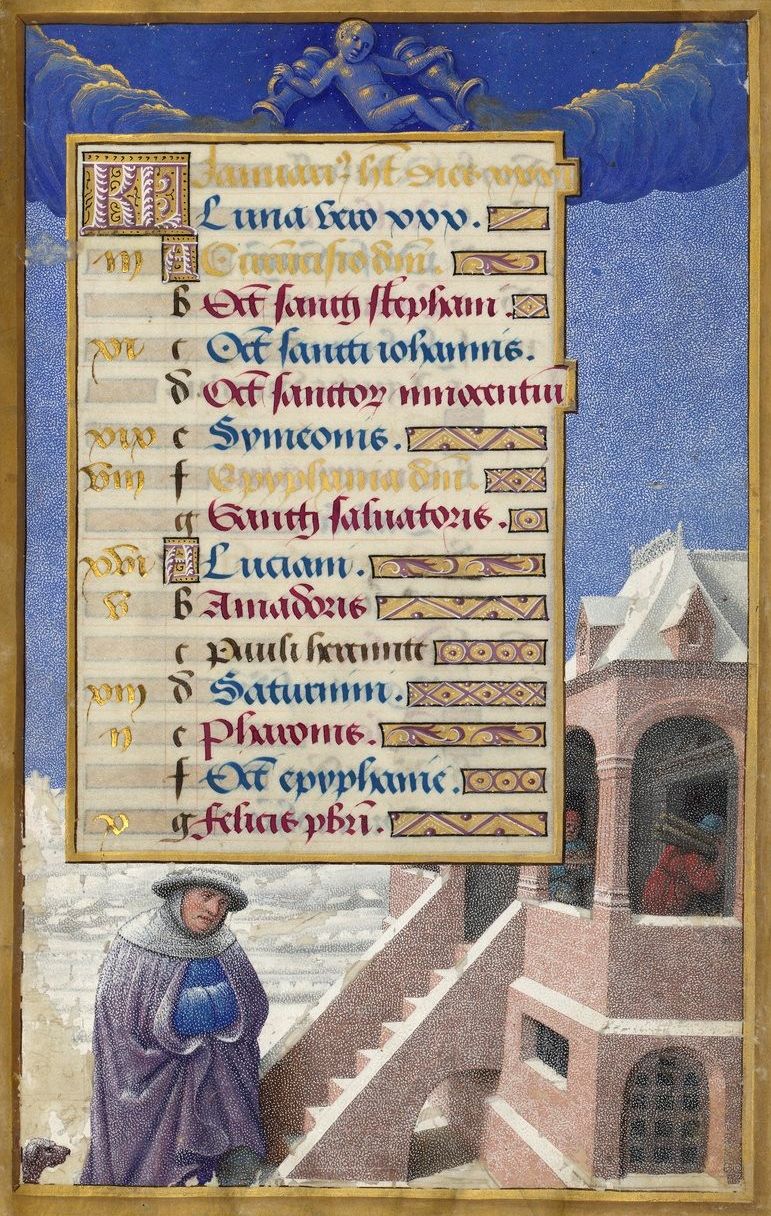 KL Januari⁹ ht dies xxxi
Luna vero xxx.
iii A Circuncisio dñi.
b Oct̄ sancti stephani.
xi c Oct̄ sancti iohannis.
d Oct̄ sanctoꝝ innocentiū
xix e Symeonis.
viii f Epyphania dñi.
g Sancti saluatoris.
xvi A Luciani.
v b Amadoris
c Pauli heremite
xiii d Saturnini.
ii e Pharonis.
f Oct̄ epyphanie.
x g Felicis pbri.